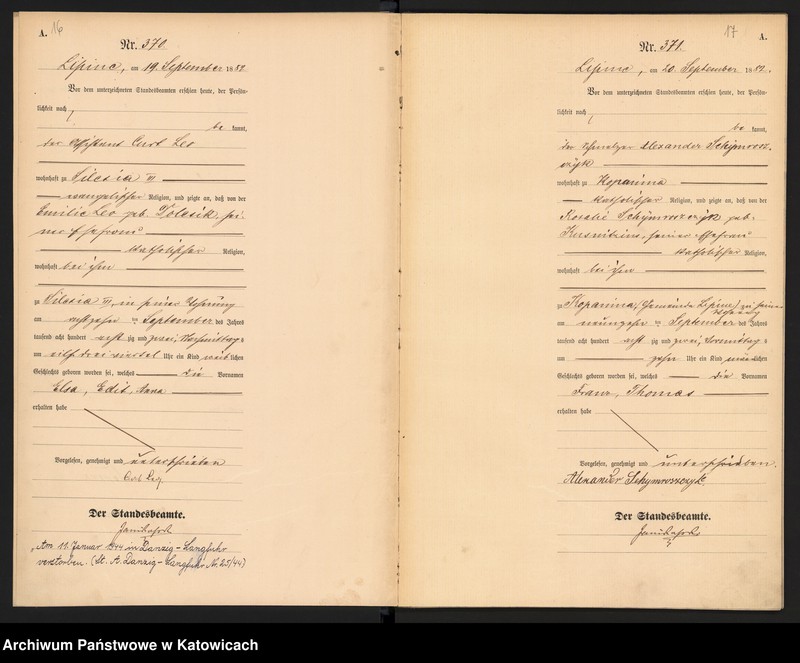 A. 16
Nr. 370.
Lipine, am 19. September 1882
Vor dem unterzeichneten Standesbeamten erschien heute, der Persön-
lichkeit nach
be kannt,
der Assistent Curt Leo
wohnhaft zu Silesia III
evangelischer Religion, und zeigte an, daß von der
Emilie Leo geb. Dolesik, sei-
ner Ehefrau
katholischer Religion,
wohnhaft bei ihm
zu Silesia III, in seiner Wohnung
am achtzehn ten September des Jahres
tausend acht hundert acht zig und zwei, Nachmittags
um elf drei viertel Uhr ein Kind weib lichen
Geschlechts geboren worden sei, welches die Vornamen
Elsa, Edit, Anna
erhalten habe
Vorgelesen, genehmigt und unterschrieben
Curt Leo
Der Standesbeamte.
"Am 11. Januar 1944 in Danzig-Langfuhr
verstorben. (St. A. Danzig-Langfuhr Nr. 25/44)
17 A.
Nr. 371.
Lipine, am 20. September 1882.
Vor dem unterzeichneten Standesbeamten erschien heute, der Persön-
lichkeit nach
be kannt,
der Schmelzer Alexander Schymrosz-
czyk
wohnhaft zu Kopanina
katholischer Religion, und zeigte an, daß von der
Rosalie Schymroszczyk geb.
seiner Ehefrau
katholischer Religion,
wohnhaft bei ihm
zu Kopanina, (Gemeinde Lipine) in seiner
Wohnung
am neunzehn ten September des Jahres
tausend acht hundert acht zig und zwei, Vormittags
um zehn Uhr ein Kind männlichen
Geschlechts geboren worden sei, welches die Vornamen
Franz, Thomas
erhalten habe
Vorgelesen, genehmigt und unterschrieben.
Alexander Schymroszczyk.
Der Standesbeamte.
Archiwum Państwowe w Katowicach